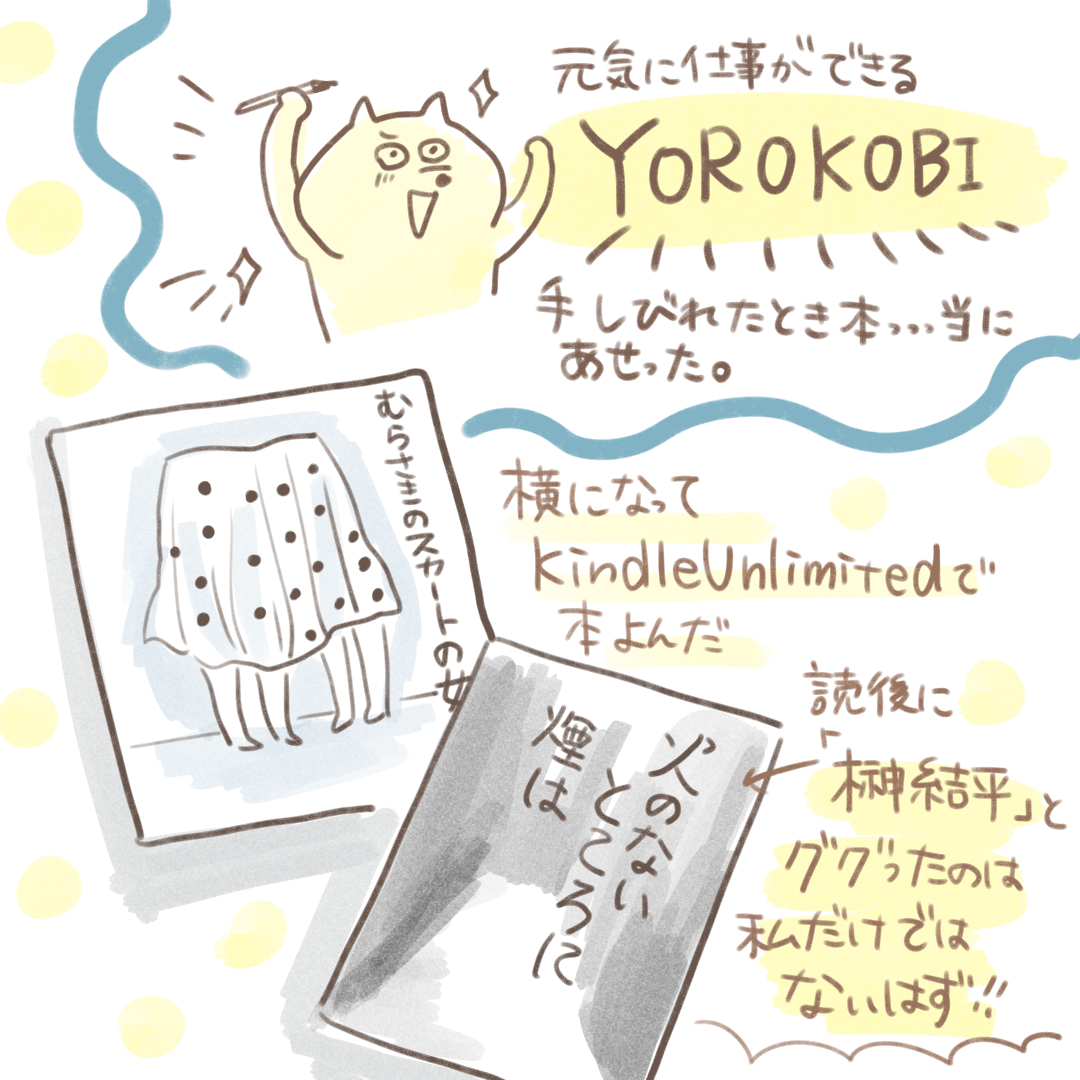 元気に仕事ができる
YOROKOBI
手しびれたとき本っ…当に
あせった。
むらさきのスカートの女
横になって
KindleUnlimitedで
本よんだ
火のない
ところに
煙は
読後に
「榊結平」と
ググったのは
私だけでは
ないはず!!